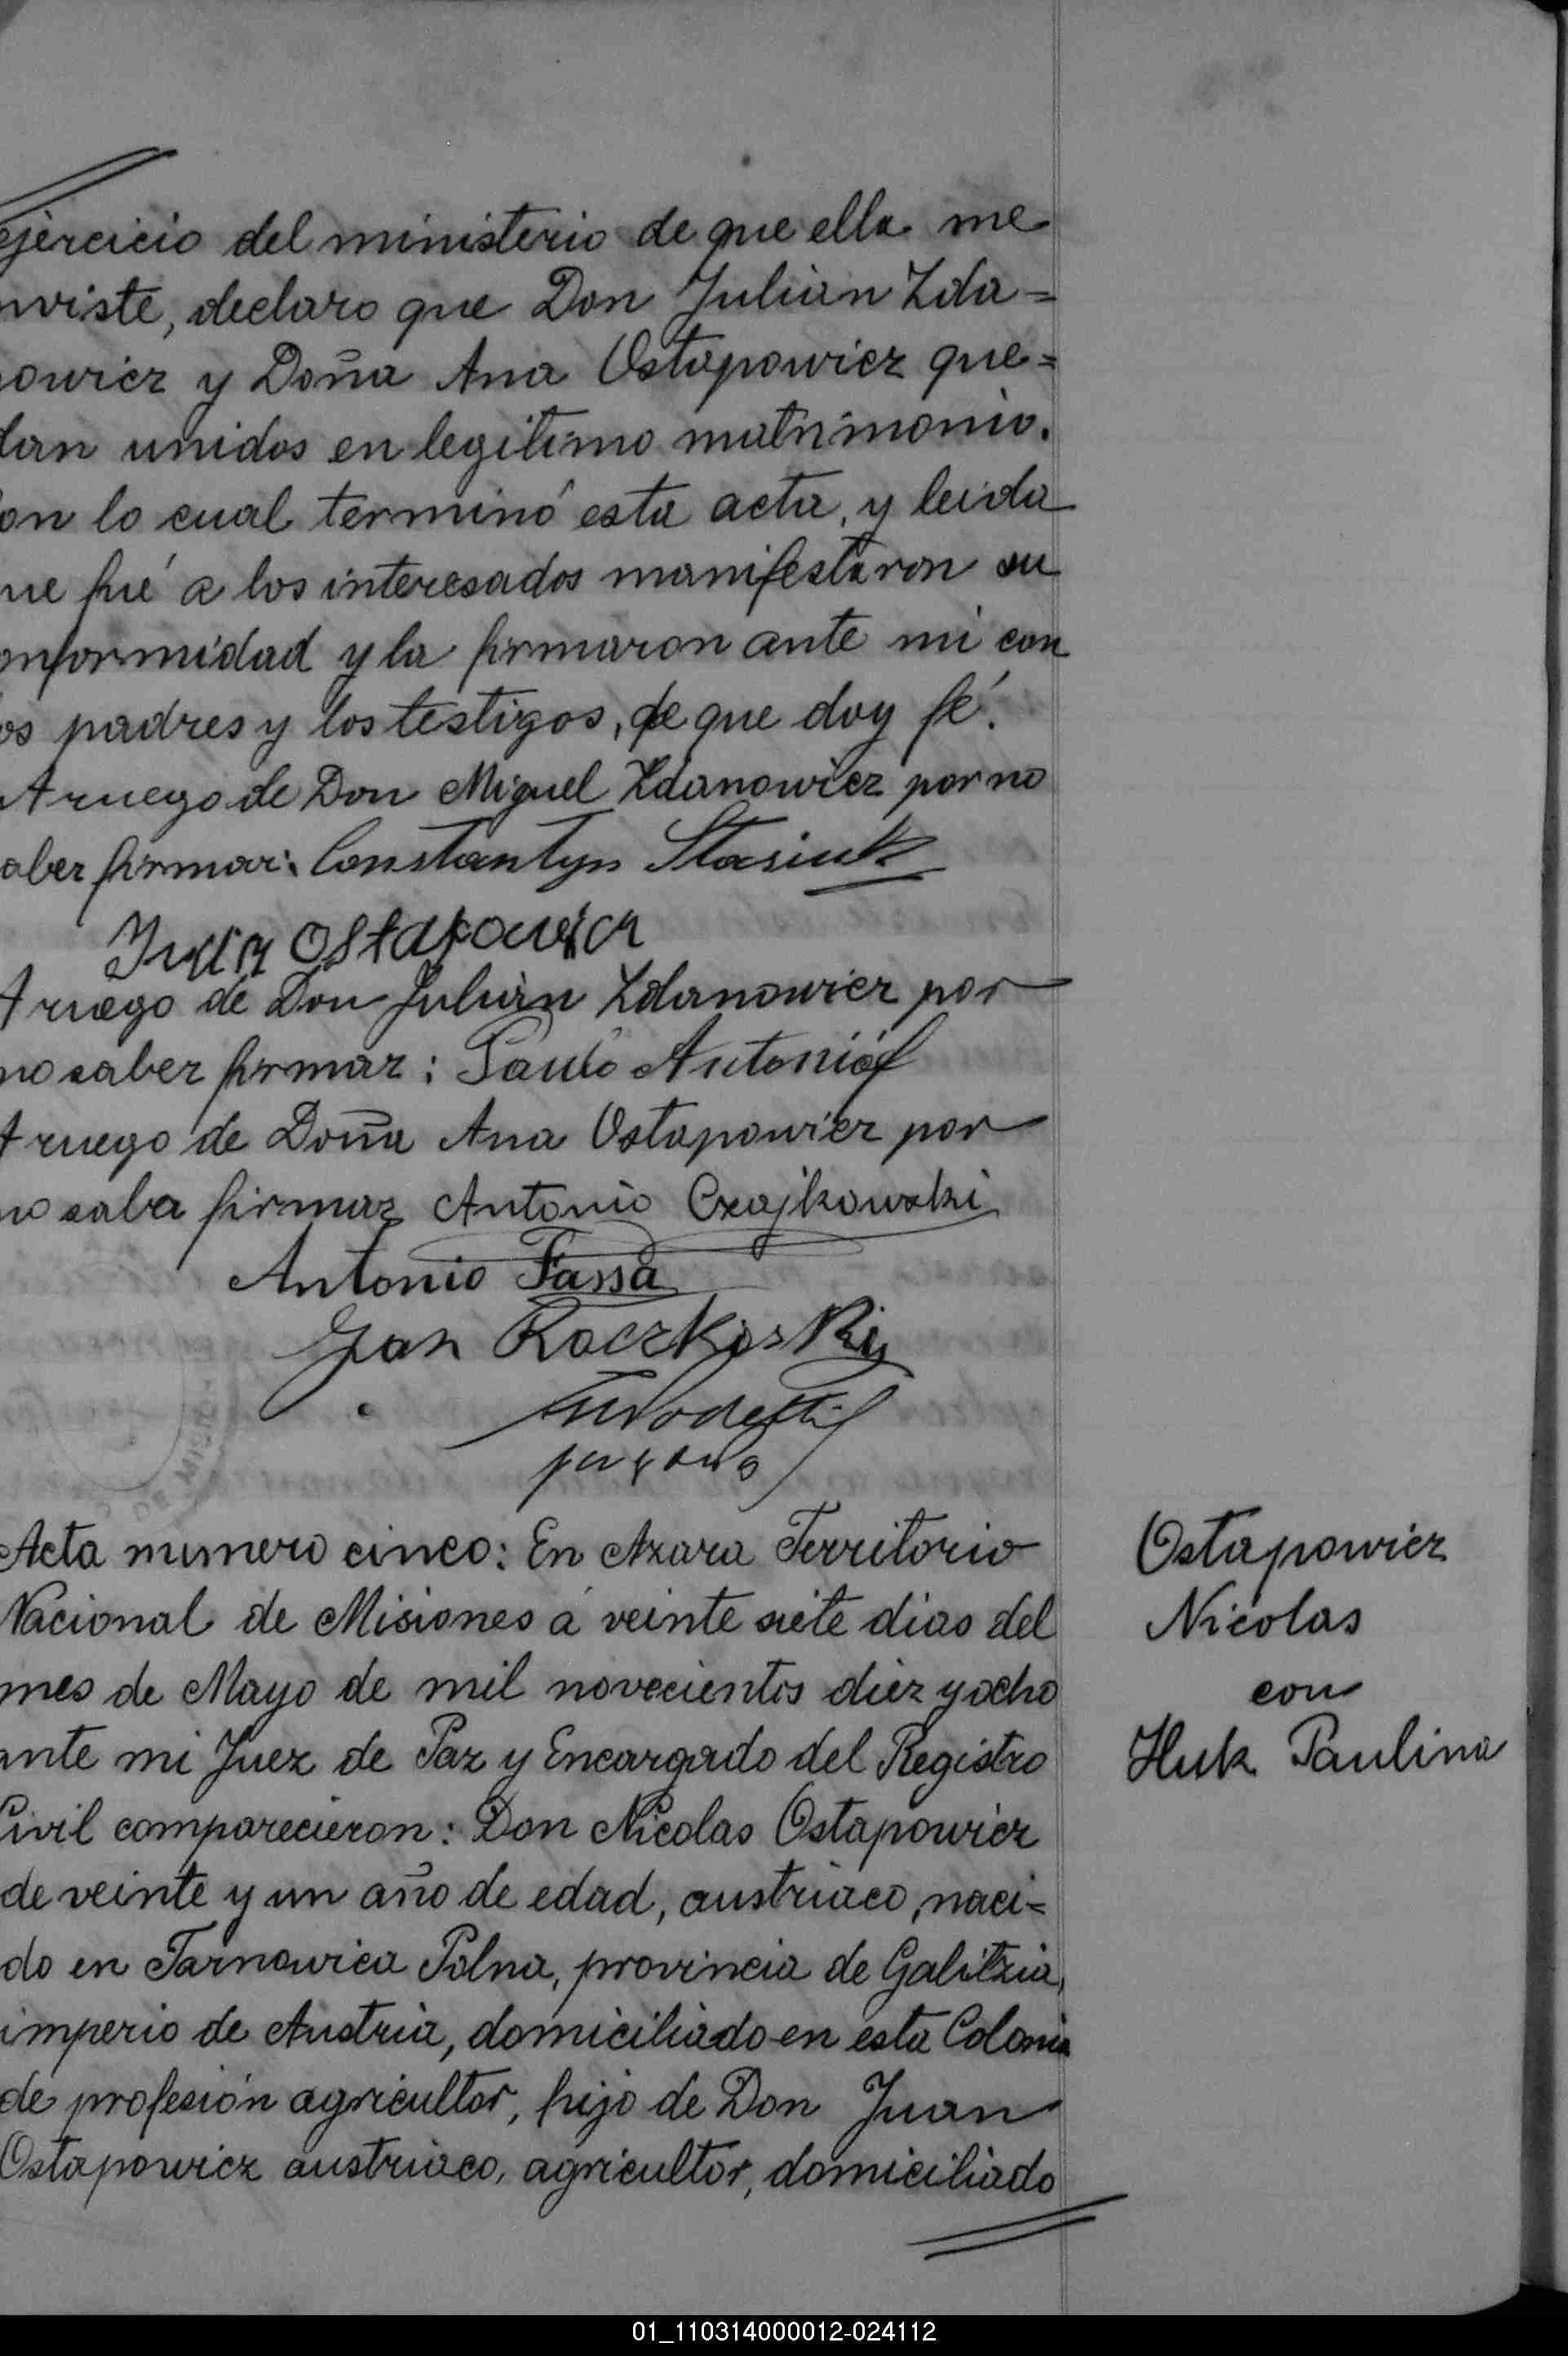 ejercicio del ministerio de que ella me
nviste, declaro que Don Julian Zda=
nowicz y Doña Ana Ostapowicz que=
dan unidos en legitimo matrimonio.
on lo cual terminó esta acta, y leida
ue fué a los interesados manifestaron su
onformidad y la firmaron ante mi con
os padres y los testigos, de que doy fé.
A ruego de Don Miguel Zdanowicz por no
saber firmar: Constantyn Stasiuk
Ostapowicz
A ruego de Don Julian Zdanowicz por
no saber firmar: Paulo Antoniów
A ruego de Doña Ana Ostapowicz por
no saba firmar Antonio Czajkowski
Antonio Fassa
Jan Raczkoski
Acta numero cinco: En Azara Territorio
Nacional de Misiones á veinte siete dias del
mes de Mayo de mil novecientos diez y ocho
ante mi Juez de Paz y Encargado del Registro
Civil comparecieron: Don Nicolas Ostapowicz
de veinte y un año de edad, austriaco, naci=
do en Tarnowica Polna, provincia de Galitzia,
imperio de Austria, domiciliado en esta Colonia
de profesión agricultor, hijo de Don Juan
Ostapowicz austriaco, agricultor, domiciliado
Ostapowicz
Nicolas
con
Huk Paulina
01_110314000012-024112